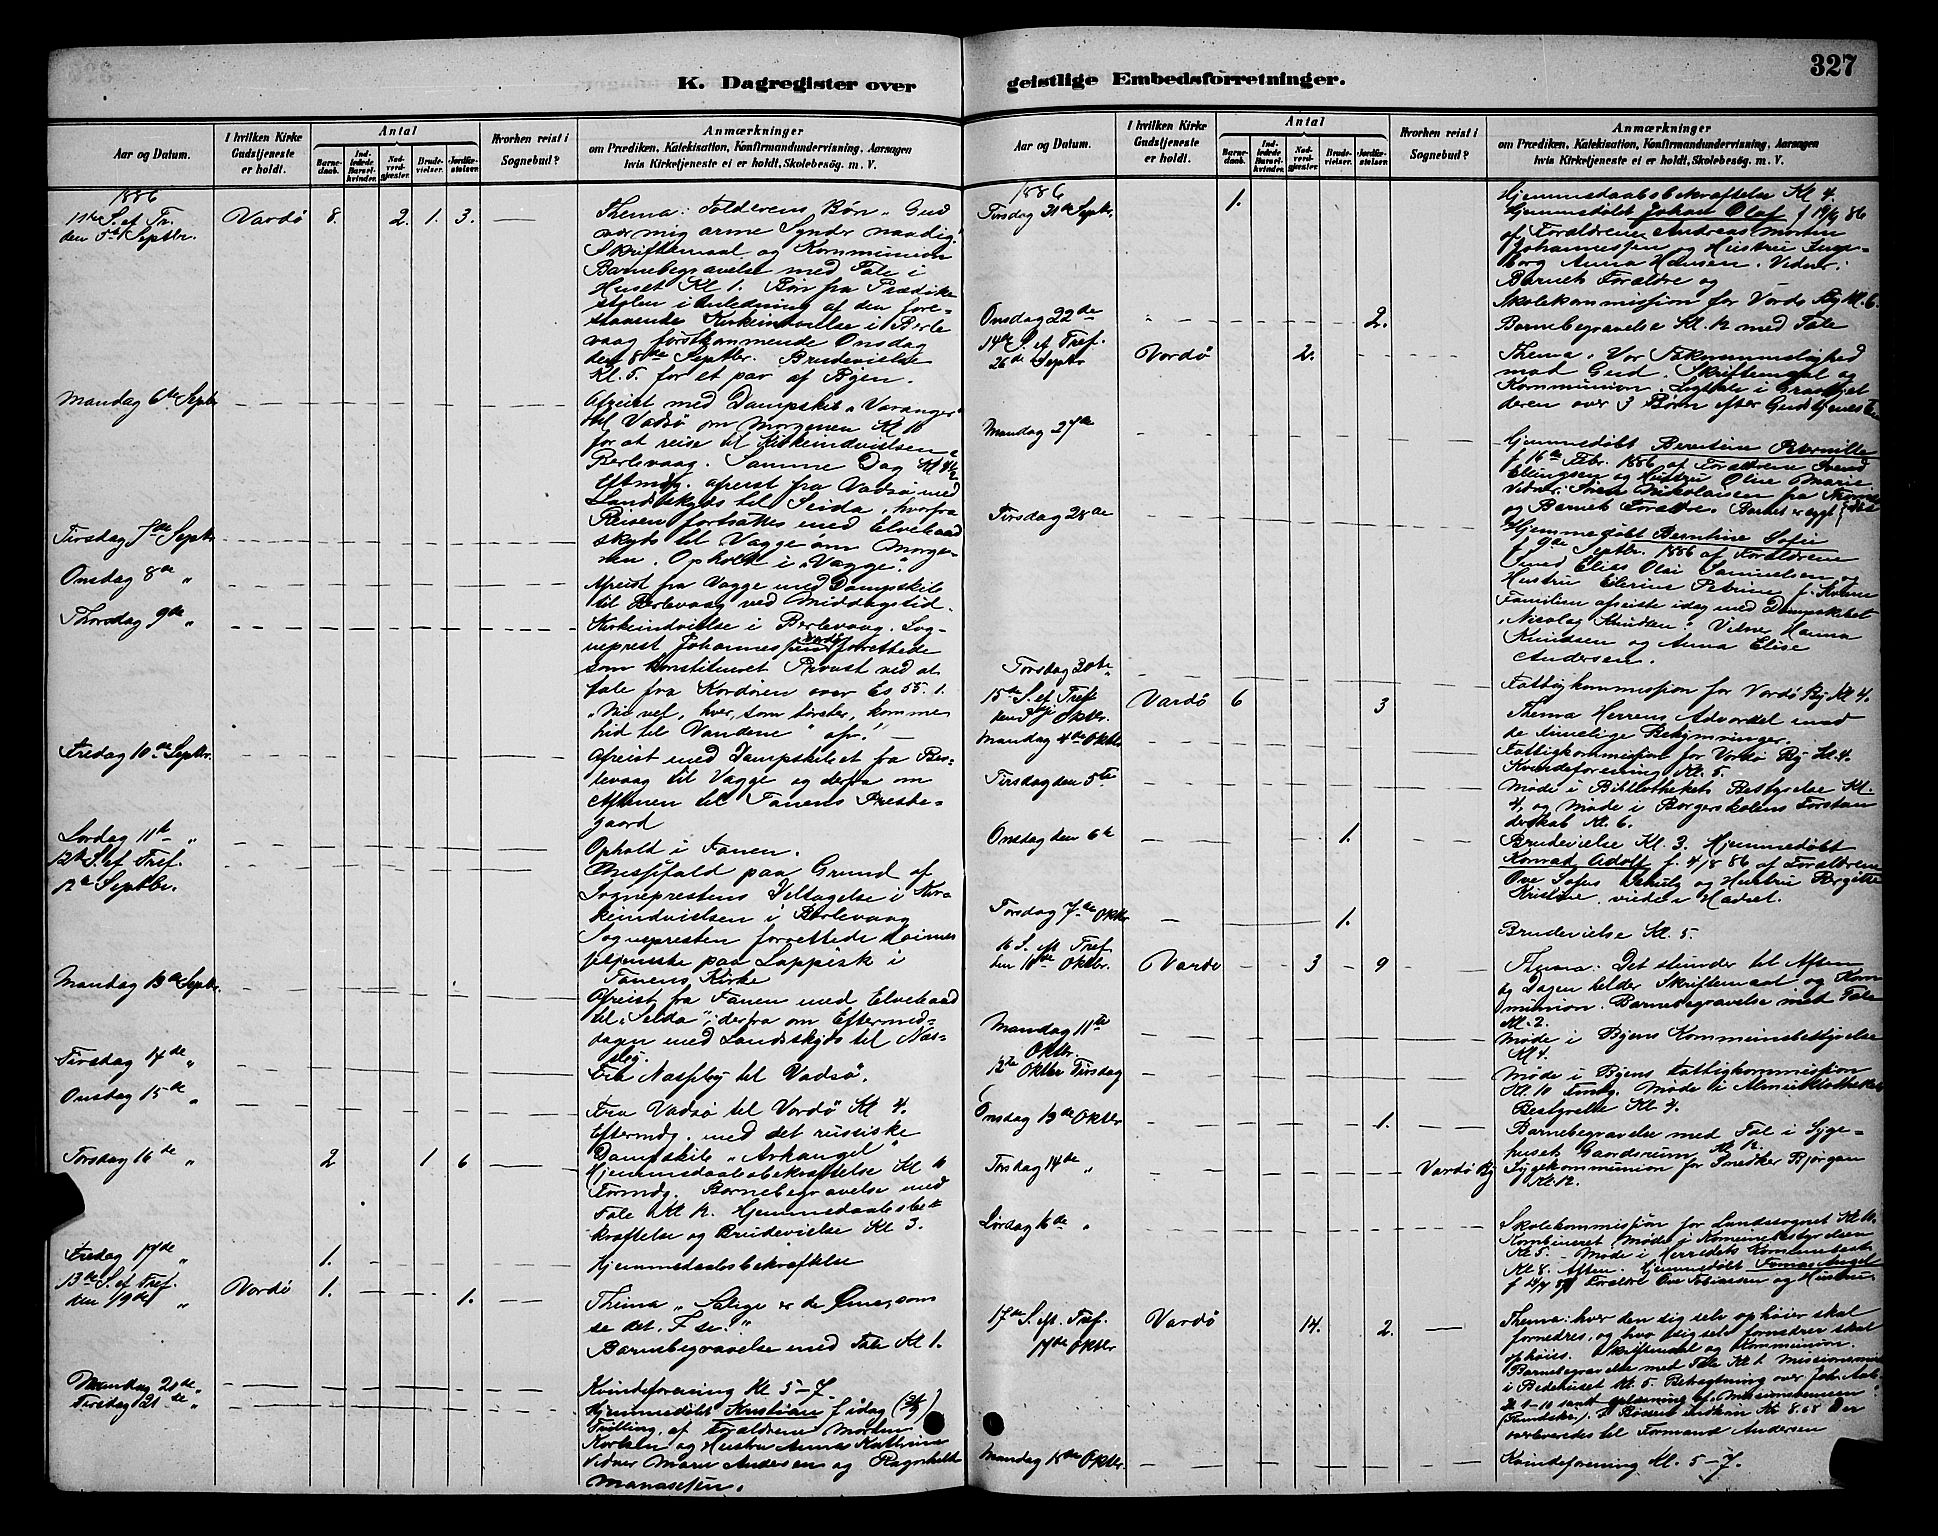 K. Dagregister over
geistlige Embedsforretninger.
327
Aar og Datum.
I hvilken Kirke
Gudstjeneste
er holdt.
Antal
Barne-
daab.
Ind-
ledede
Barsel-
kvinder.
Nad-
verd-
gjæster.
Brude-
vielser.
Jordfæ-
stelser.
Hvorhen reist i
Sognebud?
Anmærkninger
om Prædiken, Katekisation, Konfirmandundervisning, Aarsagen
hvis Kirketjeneste ei er holdt, Skolebesøg. m. V.
1886
11te S. ef Tr. Vardø 8. 2. 1. 3. Thema: Tolderens Bøn „Gud
den 5te Septbr. vær mig arme Synder naadig."
Skriftemaal og Kommunion
Barnebegravelse med Tale i
Huset Kl 1. Bøn fra Prædike
stolen i Anledning af den fore-
staaende Kirkeindvielse i Berle
vaag førstkommende Onsdag
den 8de Septbr. Brudevielse
Kl. 5. for et par af Byen.
Mandag 6te Septbr Afreist med Dampskib „Varanger"
til Vadsø om Morgenen Kl
for at reise til Kirkeindvielsen i
Berlevaag. Samme Dag Kl 4½
Eftmdg. afreist fra Vadsø med
Landskyds til Seida, hvorfra
Reisen fortsattes med Elvebaad
Tirsdag 7de Septbr skyds til Vagge om Morge-
nen. Ophold i „Vagge".
Onsdag 8de „ Afreist fra Vagge med Dampskib
til Berlevaag ved Middagstid.
Thorsdag 9de „ Kirkeindvielse i Berlevaag. Sog-
neprest Johannes forrettede
som konstitueret Provst ved at
tale fra Kordøren over Es 55. 1.
„Nu vel, hver, som tørster, komme
hid til Vandene" osv.
Fredag 10de Septbr. Afreist med Dampskibet fra Ber-
levaag til Vagge og derfra om
Aftenen til Tanens Preste-
gaard
Lørdag 11te „ Ophold i Tanen.
12te S. ef Tref. Messefald paa Grund af
12te Septbr. Sogneprestens Deltagelse i Kir-
keindvielsen i Berlevaag
Sognepresten forrettede
tjeneste paa Lappisk i
Tanens Kirke
Mandag 13de Septbr. Afreist fra Tanen med Elvebaad
til „Seida"; derfra om Eftermid-
dagen med Landskyds til Næs-
seby.
Tirsdag 14de „ Fra Næsseby til Vadsø.
Onsdag 15de „ Fra Vadsø til Vardø Kl 4.
Eftermdg. med det russiske
Dampskib „Arkangel"
Torsdag 16de „ 2 1 6 Hjemmedaabsbekræftelse Kl 11
Formdg. Barnebegravelse med
Tale Kl 12. Hjemmedaabsbe-
kræftelse og Brudevielse Kl 3.
Fredag 17de „ 1. Hjemmedaabsbekræftelse
13de S. ef Tref. Vardø 1. 1. Thema „Salige er de Øine, som
den 19de „ se det, I se."
Barnebegravelse med Tale Kl 1.
Mandag 20de „ Kvindeforening Kl 5-7.
Tirsdag 21de „ Hjemmedøbt Kristian f. idag (21/9)
Trilling, af Forældrene Morten
Karlsen og Hustru Anna Kathrina
Vidner Marie Andersen og Ragnhilde
Manassesen.
Aar og Datum.
I hvilken Kirke
Gudstjeneste
er holdt.
Antal
Barne-
daab.
Ind-
ledede
Barsel-
kvinder.
Nad-
verd-
gjæster.
Brude-
vielser.
Jordfæ-
stelser.
Hvorhen reist i
Sognebud?
Anmærkninger
om Prædiken, Katekisation, Konfirmandundervisning, Aarsagen
hvis Kirketjeneste ei er holdt, Skolebesøg. m. V.
1886
Tirsdag 21de Septbr. 1. Hjemmedaabsbekræftelse Kl 4.
Hjemmedøbt Johan Olaf f 19/9 86
af Forældrene Andreas Morten
Johannessen og Hustru Inge-
borg Anna Hansen. Vidner:
Barnets Forældre og
Skolekommission for Vardø By Kl. 6.
Onsdag 22de 2. Barnebegravelse Kl. 12 med Tale
14de S. ef Tref. Thema: Vor Taknemmelighed
26de Septbr Vardø 2. mod Gud. Skriftemaal og
Kommunion. Ligtale i
deren over 3 Børn efter Gudstjenesten
Mandag 27de Hjemmedøbt Berntine Peternille
f. 16de Febr. 1886 af Forældrene Svend
Elingsen og Hustru Oline Marie
Vidner: Nikolaisen fra
og Barnets Forældre. Barnet er sygt
Tirsdag 28de Hjemmedøbt Berntine Sofie
f. 9de Septbr. 1886 af Forældrene
Smed Elias Olai Samuelsen og
Hustru Elerine Petrine
Familien afreiste idag med Dampskibet
„Nicolay Knudtzon". Vidner Hanna
Knudsen og Anna Elise
Andersen.
Torsdag 30te „ Fattigkommission for Vardø By Kl 4.
15de S. ef Tref Vardø 6 3 Thema Herrens Advarsel mod
den 3je Oktbr. de timelige Bekymringer.
Mandag 4de Oktbr Fattigkommission for Vardø By Kl. 4.
Kvindeforening Kl. 5.
Tirsdag den 5te Møde i Bibliothekets Bestyrelse Kl.
4, og Møde i Borgerskolens Forstan
derskab Kl. 6.
Onsdag den 6te 1. Brudevielse Kl. 3. Hjemmedøbt
Konrad Adolf f. 4/8 86 af Forældrene
Ove Sofus og Hustru Birgitte
Kristine, viede i Hadsel.
Torsdag 7de Oktbr 1. Brudevielse Kl. 5.
16 S. ef. Tref.
den 10de Oktbr. Vardø 3 9 Thema: Det stunder til Aften
og Dagen helder Skriftemaal og Kom
munion. Barnebegravelse med Tale
Kl. 2.
Mandag 11te Oktbr. Møde i Byens Kommunebestyrelse
Kl 4.
12te Oktbr Tirsdag Møde i Byens Fattigkommission
Kl. 10 Fmdg. Møde i Almuebibliothekets
Bestyrelse Kl 4.
Onsdag 13de Oktbr. 1. Barnebegravelse med Tale i Syge-
husets Gaardsrum, Kl 12.
Torsdag 14de „ Vardø By Sygekommunion for Snedker Bjørgan
Kl. 12.
Lørdag 16de „ Skolekommission for Landsognet Kl 11.
Kombineret Møde i Komunebestyrelsen
Kl. 5. - Møde i Herredets Kommunebest.
Kl 8. Aften. Hjemmedøbt
f. Forældre Ove Tobiassen og Hustru
17de S. ef. Tref. Vardø 14. 2. Thema: hver den sig selv ophøier skal
17de Oktbr fornedres, og hvo sig selv fornedrer skal
ophøies. Skriftemaal og Kommunion.
Barnebegravelse med Tale Kl 1. Missionsmøde
i Bedehuset Kl. 5. Betragtning over Joh. Aab.
samt oplæsning af „Missionsvennen"
Bøssens indhold Kr 8.68 Der
overleveredes til Formand Andersen
Mandag 18de Oktbr. Kvindeforening Kl. 5-7.